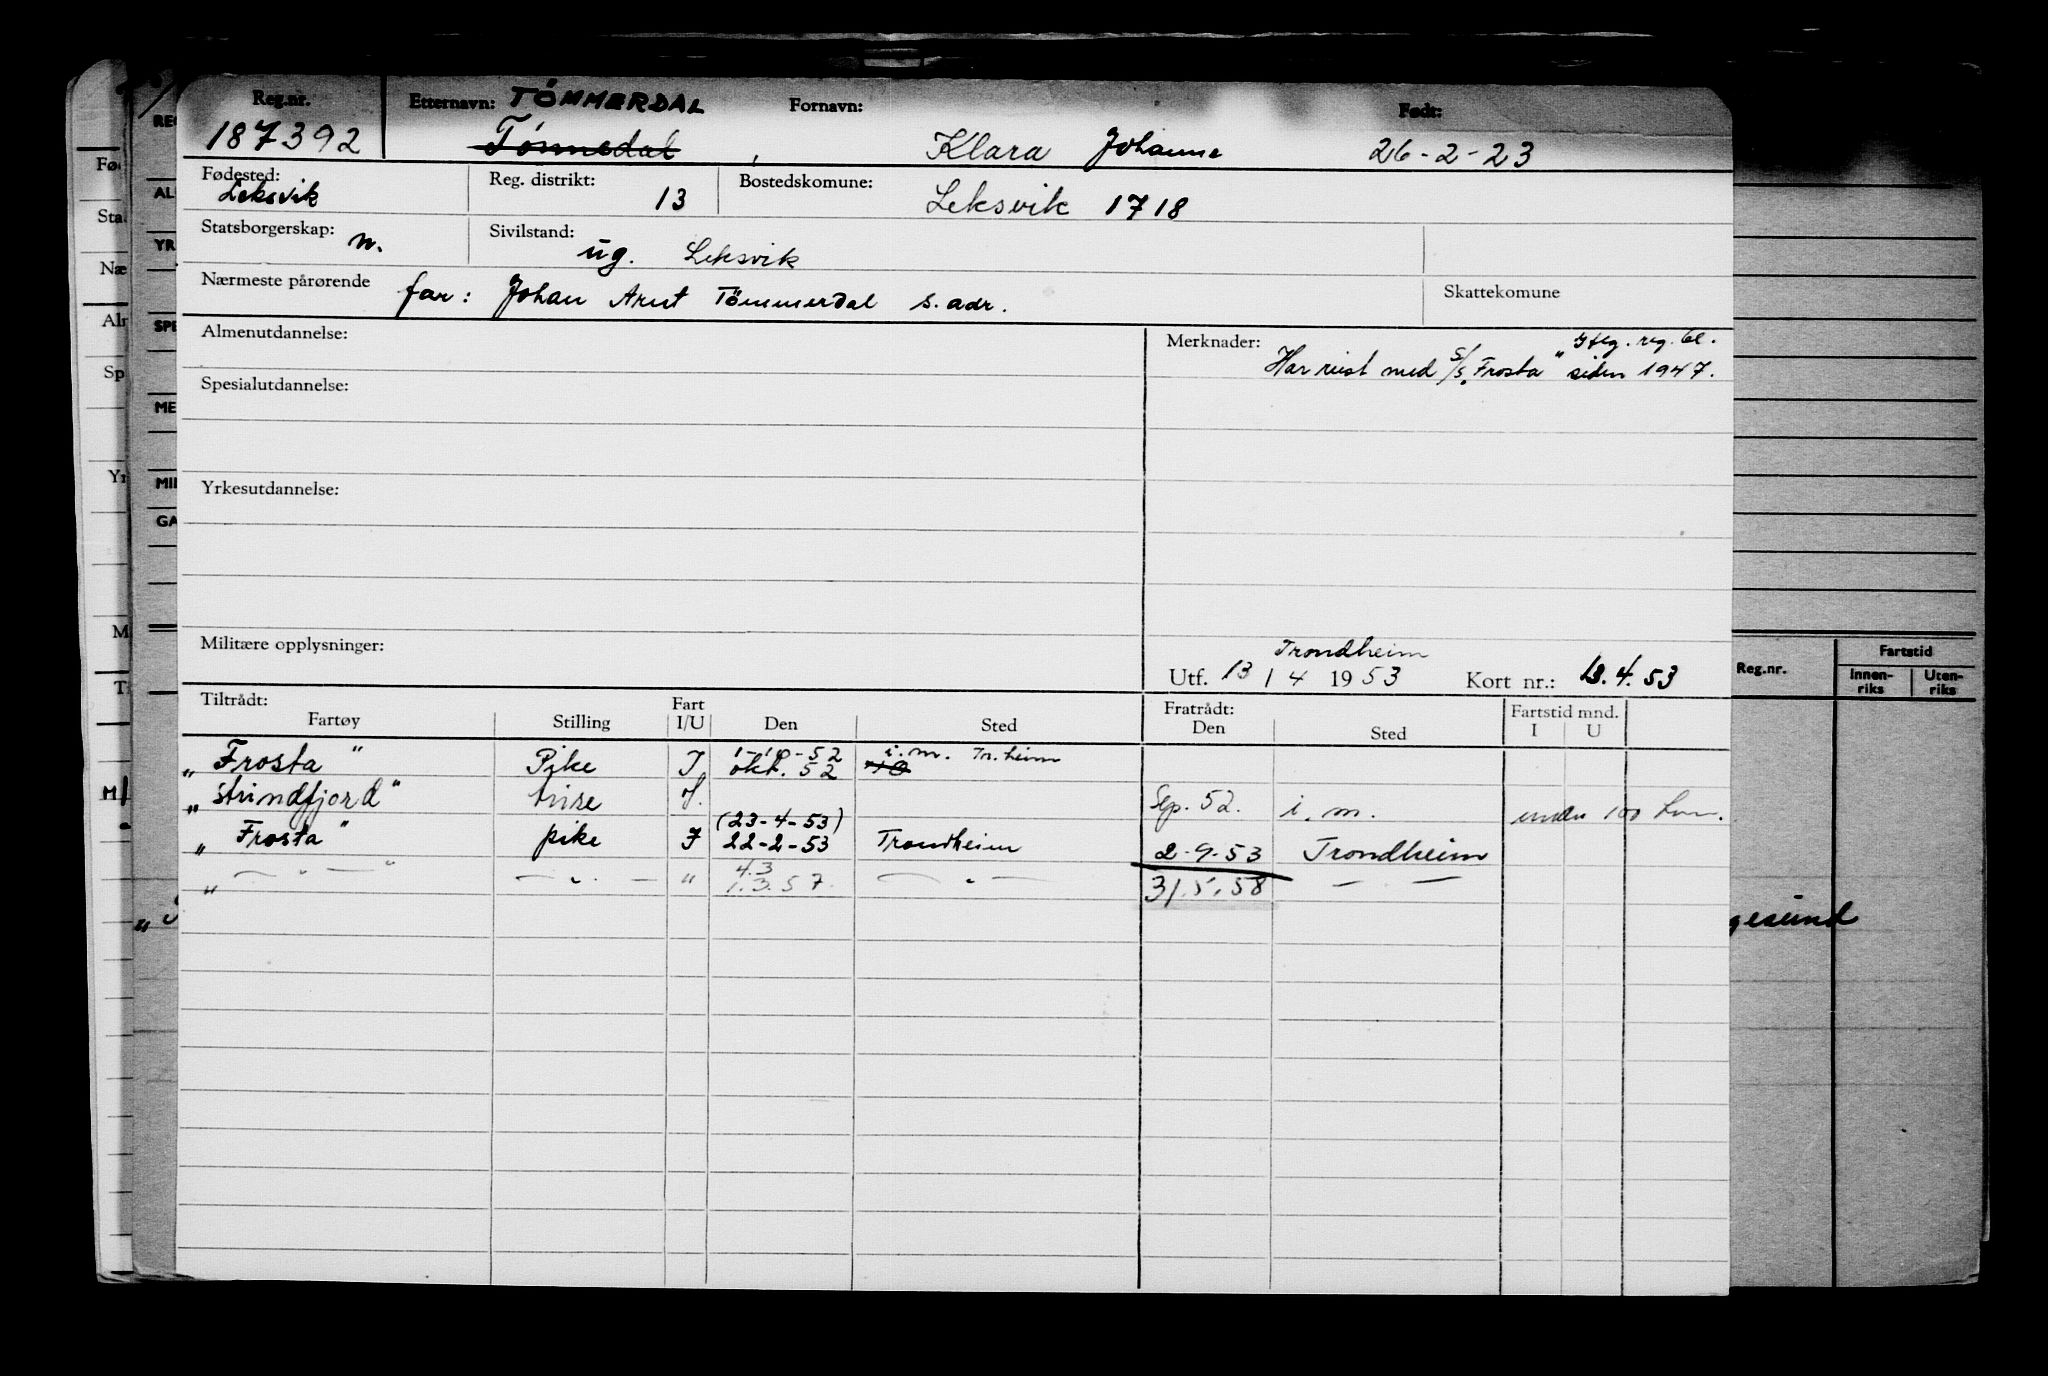 Reg.nr. Etternavn: TÖMMERDAL Fornavn: Født:
187392 Tömmedal, Klara Johanne 26-2-23
Fødested: Leksvik Reg. distrikt: 13 Bostedskomune: Leksvik 1718
Statsborgerskap: n. Sivilstand: ug. Leksvik
Nærmeste pårørende far: Johan Arnt Tömmerdal s. adr. Skattekomune
Almenutdannelse: Merknader: iflg. reg. bl.
Har reist med S/S „Frosta" siden 1947.
Spesialutdannelse:
Yrkesutdannelse:
Militære opplysninger: Trondheim
Utf. 13 / 4 1953 Kort nr.: 13.4.53
Tiltrådt: Fratrådt: Fartstid mnd.
Fartøy Stilling Fart I/U Den Sted Den Sted I U
1-10-52 i.m. Tr.heim
„Frosta" Pike I okt. 52
„Strindfjord" trise I. Sep. 52. i.m. under 100 tonn.
(23-4-53)
„Frosta" pike I 22-2-53 Trondheim 2-9-53 Trondheim
4.3
„ — " — " — " — " 1.3.57. — " — 31.5.58 — " —
Fartstid
Reg.nr. Innen-riks Uten-riks
gesund